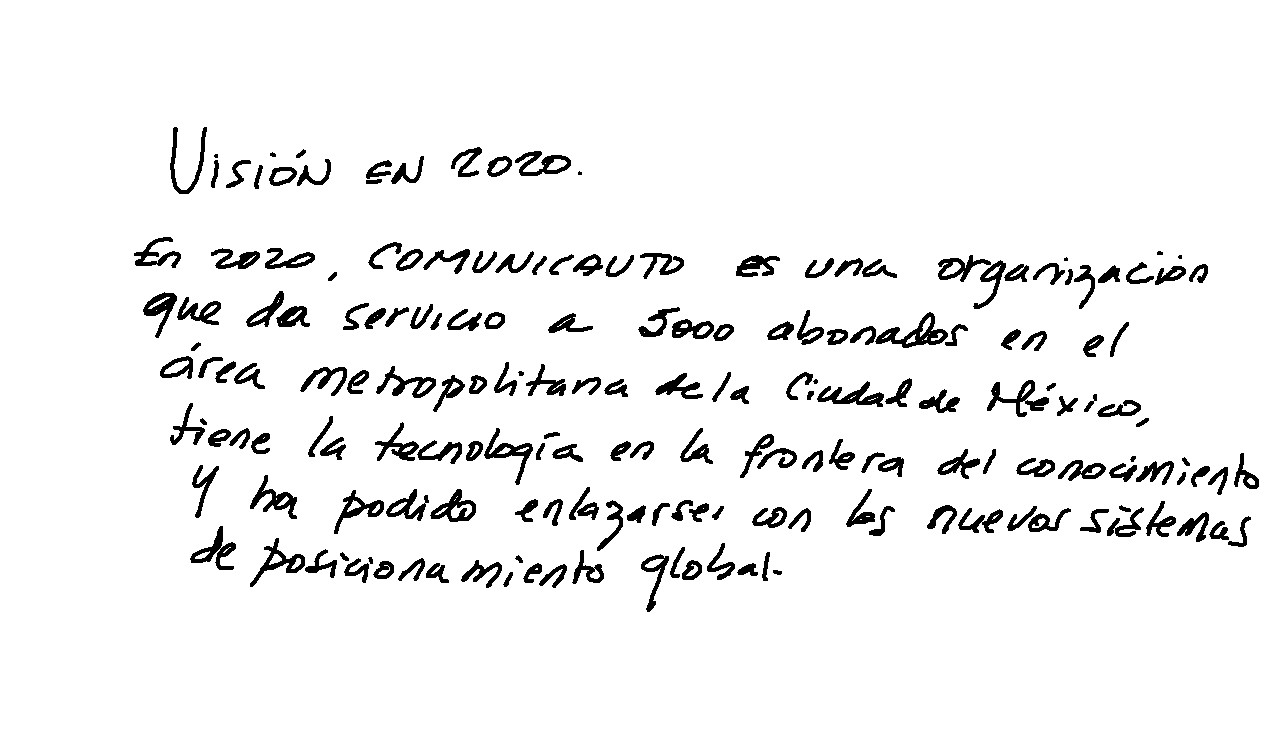 VISIÓN EN 2020.
En 2020, COMUNICAUTO es una organización
que da servicio a 5000 abonados en el
área metropolitana de la Ciudad de México,
tiene la tecnología en la frontera del conocimiento
y ha podido enlazarse con los nuevos sistemas
de posicionamiento global.